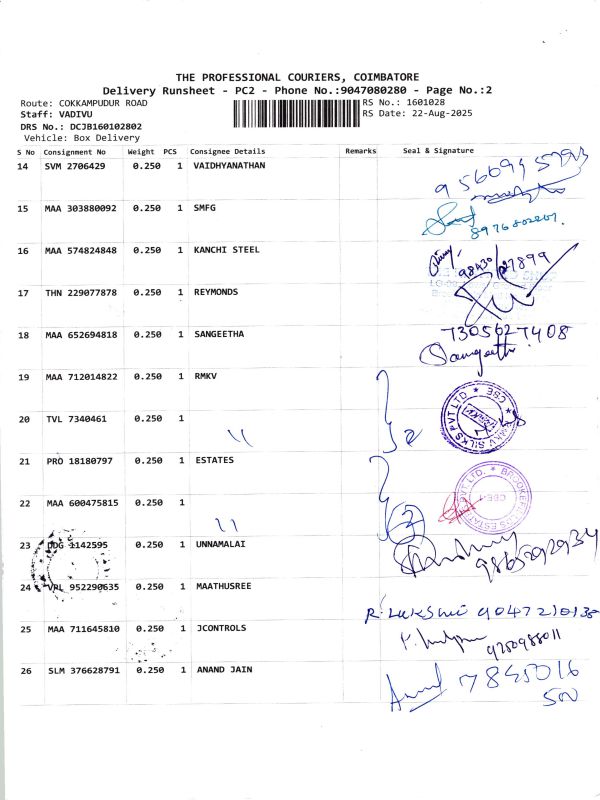 THE PROFESSIONAL COURIERS, COIMBATORE
Delivery Runsheet - PC2 - Phone No.:9047080280 - Page No.:2
Route: COKKAMPUDUR ROAD
RS No.: 1601028
Staff: VADIVU
RS Date: 22-Aug-2025
DRS No.: DCJB160102802
Vehicle: Box Delivery
S No Consignment No Weight PCS Consignee Details Remarks Seal & Signature
14 SVM 2706429 0.250 1 VAIDHYANATHAN
15 MAA 303880092 0.250 1 SMFG
16 MAA 574824848 0.250 1 KANCHI STEEL
17 THN 229077878 0.250 1 REYMONDS
18 MAA 652694818 0.250 1 SANGEETHA 7305627408
Sangeetha
19 MAA 712014822 0.250 1 RMKV
20 TVL 7340461 0.250 1 2
21 PRO 18180797 0.250 1 ESTATES
22 MAA 600475815 0.250 1 2
23 DDG 1142595 0.250 1 UNNAMALAI 9865292934
24 VRL 952290635 0.250 1 MAATHUSREE
25 MAA 711645810 0.250 1 JCONTROLS
26 SLM 376628791 0.250 1 ANAND JAIN Anand 7845016
500